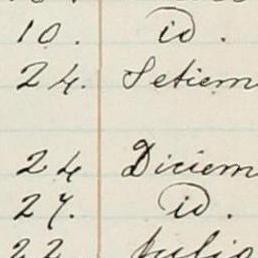 10. id.
24. Setiem
24 Diciem
27. id.
22 Julio